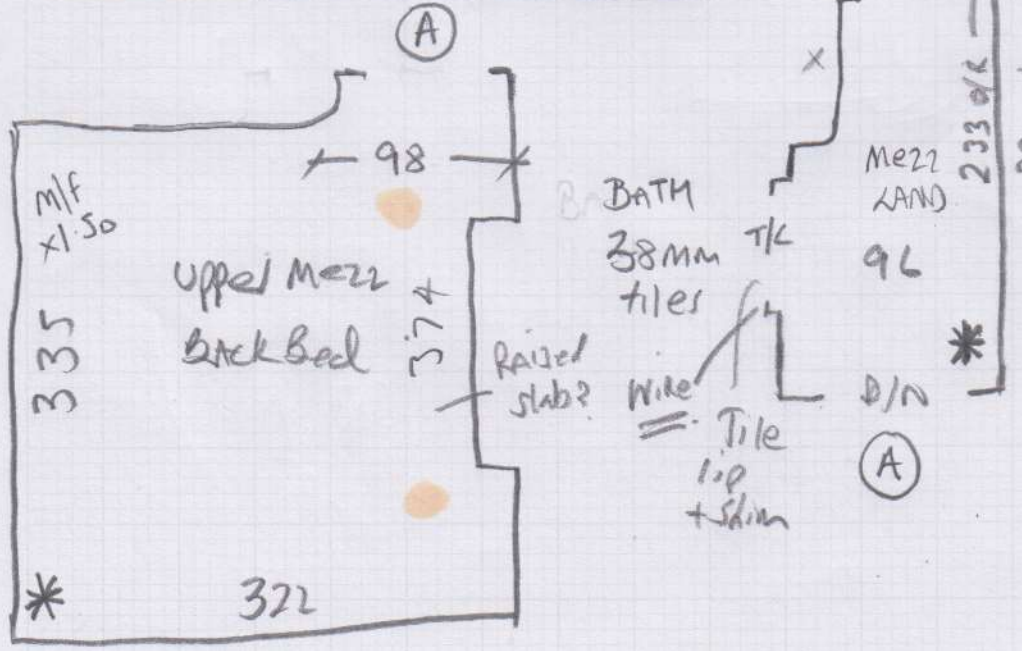 A
98
m/f
x1.50
335
Upper Mezz
Back Bed
374
Raised
slab?
322
*
BATH
38mm
tiles
T/L
Wire
Tile
lip
+ Shim
x
Mezz
LAND
96
233 O/R
*
D/N
A